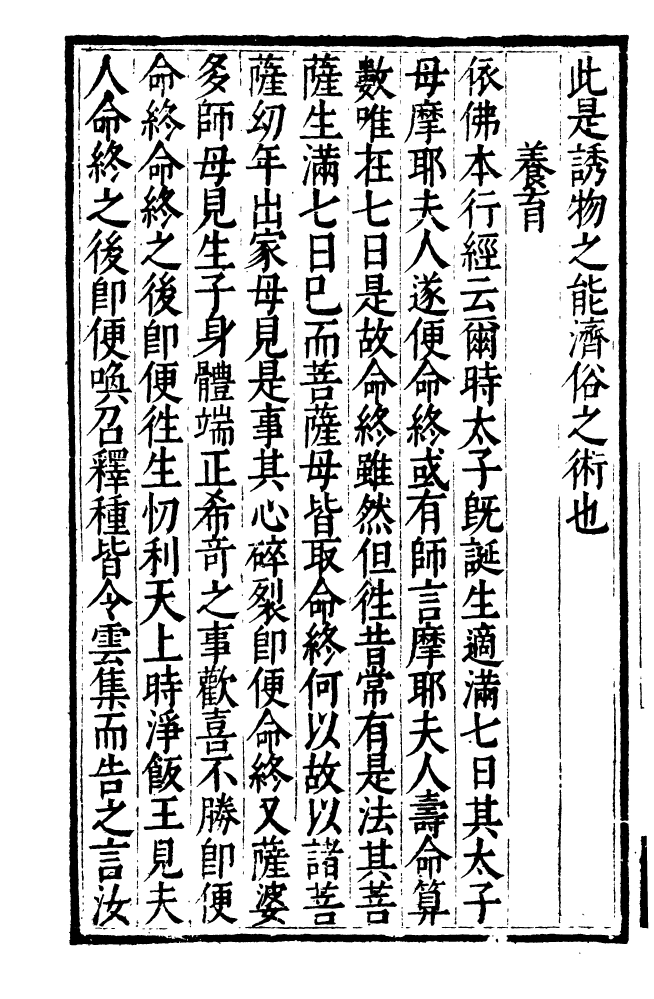 此是誘物之能濟俗之術也
養育
依佛本行經云爾時太子旣誕生適滿七日其太子
母摩耶夫人遂便命終或有師言摩耶夫人壽命算
數唯在七日是故命終雖然但徃昔常有是法其菩
薩生滿七日已而菩薩母皆取命終何以故以諸菩
薩㓜年出家母見是事其心碎裂卽便命終又薩婆
多師母見生子身體端正希竒之事歡喜不勝卽便
命終命終之後卽便徃生忉利天上時淨飯王見夫
人命終之後卽便喚召釋種皆令雲集而告之言汝